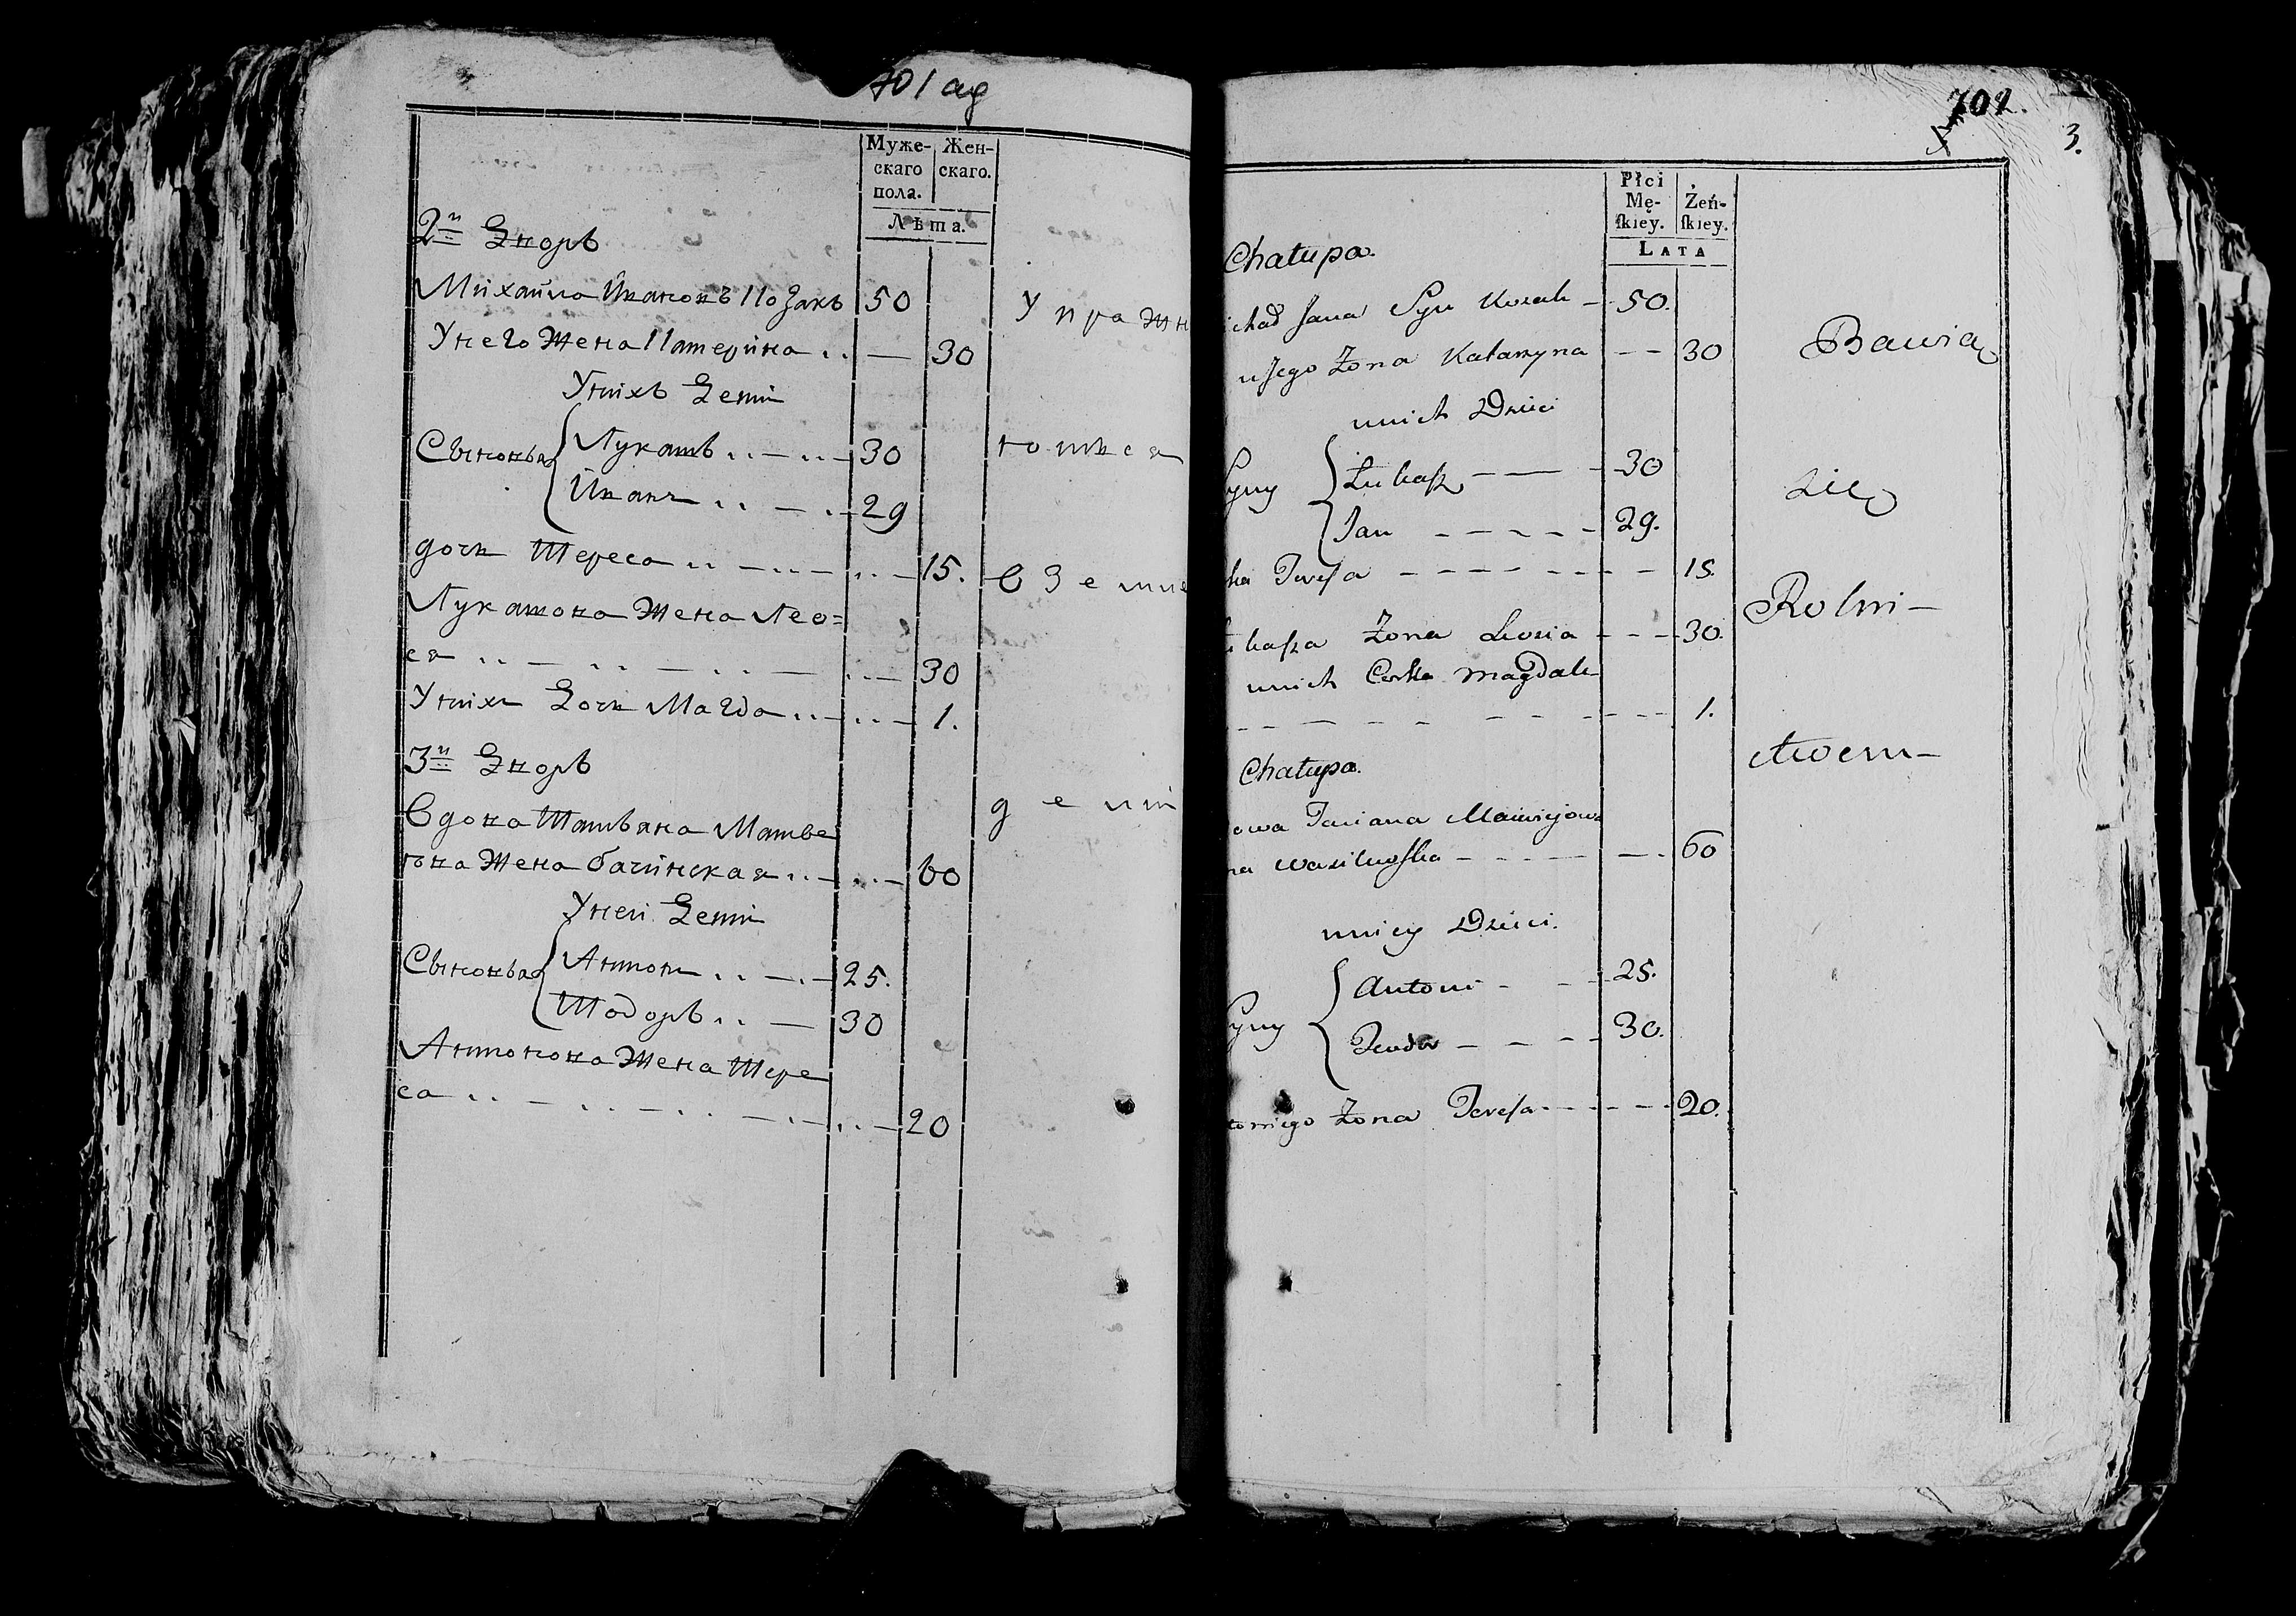 701 ад
Муже-
скаго
пола.
Жен-
скаго.
Лѣта.
2й Дворъ
Михайла Ивановъ Козакъ 50
У него Жена Катерина .. — 30
У нихъ Дети
Сыновья Лукашъ .. — .. — 30
Иванъ .. — . — 29
дочь Тереса .. — .. — .. — 15.
Лукашова Жена Лео=
ся .. — .. — .. — .. — 30
У нихъ Дочь Магда .. — .. — 1.
3й Дворъ
Вдова Татьяна Матве
ева Жена Бачинская .. — .. — 60
У неи Дети
Сыновья Антонъ .. — . — 25.
Тодоръ .. — 30
Антонова Жена Тере
са .. — .. — .. — . — .. — 20
Упражн
яютса
в Земле
дели
702.
3.
Płci
Mę-
ſkiey.
Żeń-
ſkiey.
LATA
Chałupa.
ichał Jana Syn Kozak — 50.
u Jego Żona Katarzyna — — 30
u nich Dzieci
yny Łukaſz — — 30
Jan — — — — 29.
ka Tereſa — — — — — — — 15.
ukaſza Żona Leosia — — — 30.
u nich Corka Magdale
— — — — — — — — — 1.
Chałupa.
owa Taciana
na — — — — — — . 60
u niey Dzieci.
yny Antoni — — 25.
Teodor — — — — 30.
toniego Żona Tereſa — — — — 20.
Bawią
się
Rolni —
ctwem —